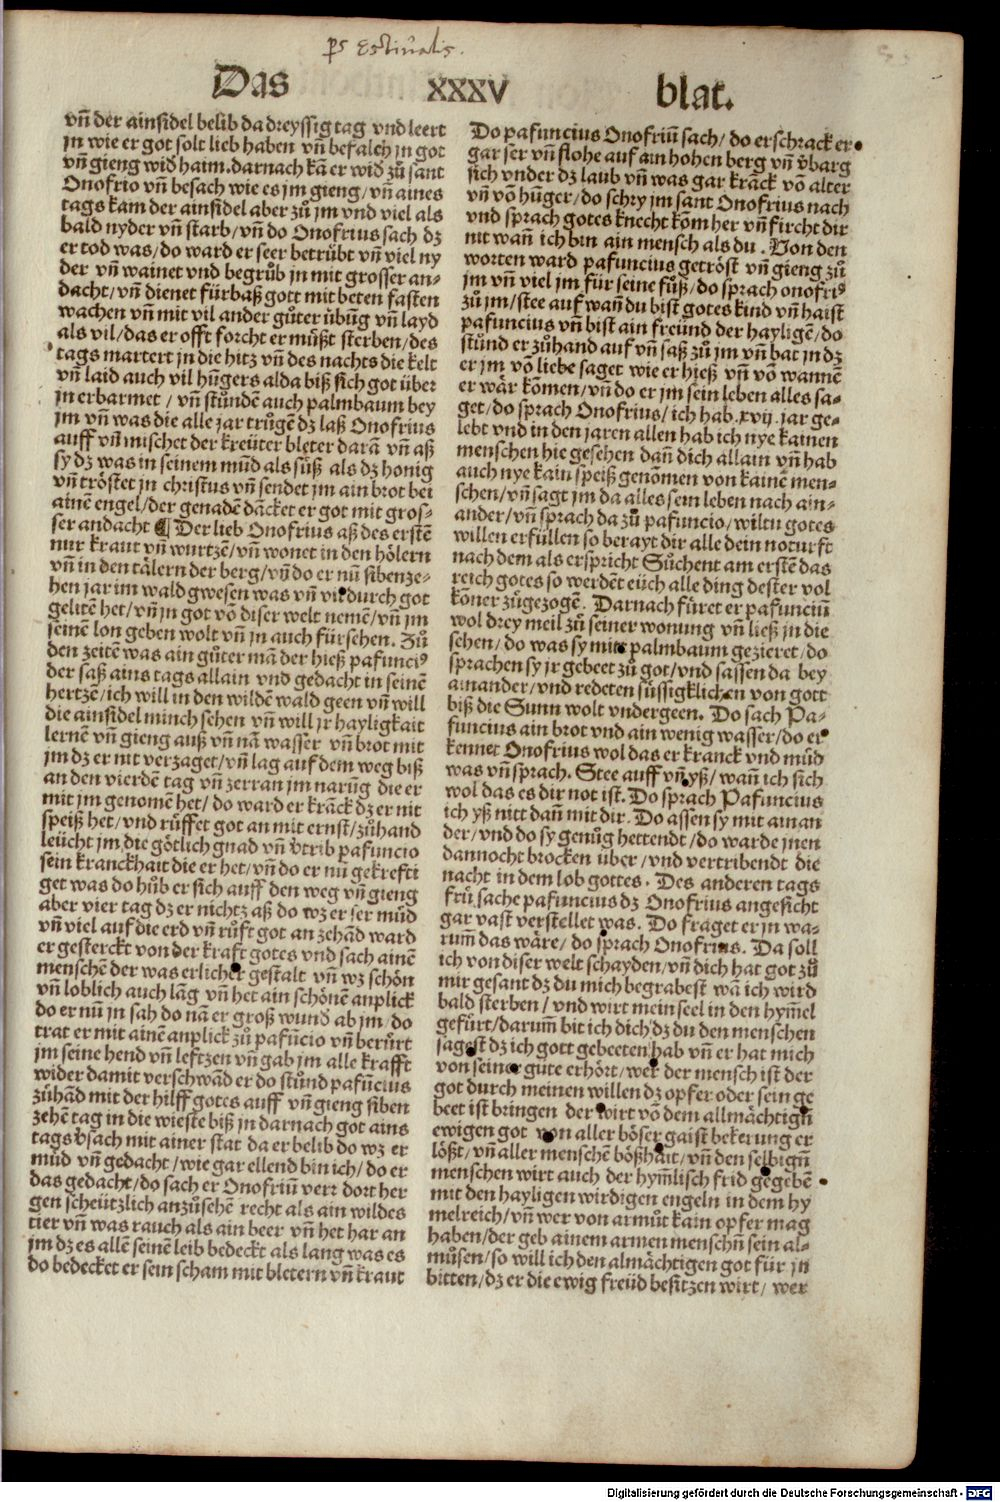 ps Estiualis.
Das XXXV blat.
vñ der ainsidel belib da dreyssig tag vnd leert
jn wie er got solt lieb haben vñ befalch jn got
vñ gieng wid haim. darnach kā er wid zů sant
Onofrio vñ besach wie es jm gieng / vñ aines
tags kam der ainsidel aber zů jm vnd viel als
bald nyder vñ starb / vñ do Onofrius sach dz
er tod was / do ward er seer betrübt vñ viel ny
der vñ wainet vnd begrůb jn mit grosser an⸗
dacht / vñ dienet fürbaß gott mit beten fasten
wachen vñ mit vil ander gůter übūg vñ layd
als vil / das er offt forcht er müßt sterben / des
tags martert jn die hitz vñ des nachts die kelt
vñ laid auch vil hūgers alda biß sich got über
jn erbarmet / vñ stůndē auch palmbaum bey
jm vñ was die alle jar trůgē dz laß Onofrius
auff vñ mischet der kreüter bleter darā vñ aß
sy dz was in seinem mūd als süß als dz honig
vñ tröstet jn christus vñ sendet jm ain brot bei
ainē engel / der genadē dācket er got mit gros⸗
ser andacht ¶ Der lieb Onofrius aß des erstē
nur kraut vñ wurtzē / vñ wonet in den hölern
vñ in den tälern der berg / vñ do er nū sibenze⸗
hen jar im wald gwesen was vñ vil durch got
gelitē het / vñ jn got vō diser welt nemē / vñ jm
seinē lon geben wolt vñ jn auch fürsehen. Zů
den zeitē was ain gůter mā der hieß pafunciꝰ
der saß ains tags allain vnd gedacht in seinē
hertzē / ich will in den wildē wald geen vñ will
die ainsidel minch sehen vñ will jr hayligkait
lernē vñ gieng auß vñ nā wasser vñ brot mit
jm dz er nit verzaget / vñ lag auf dem weg biß
an den vierdē tag vñ zerran jm narūg die er
mit jm genomē het / do ward er krāck dz er nit
speiß het / vnd růffet got an mit ernst / zůhand
leücht jm die götlich gnad vñ v̄trib pafuncio
sein kranckhait die er het / vñ do er nū gekrefti
get was do hůb er sich auff den weg vñ gieng
aber vier tag dz er nichtz aß do wz er ser můd
vñ viel auf die erd vñ růft got an zehād ward
er gesterckt von der kraft gotes vnd sach ainē
menschē der was erlicher gestalt vñ wz schön
vñ loblich auch lāg vñ het ain schönē anplick
do er nū jn sah do nā er groß wund ab jm / do
trat er mit ainē anplick zů pafūcio vñ berůrt
jm seine hend vñ leftzen vñ gab jm alle krafft
wider damit verschwād er do stůnd pafūcius
zůhād mit der hilff gotes auff vñ gieng siben
zehē tag in die wieste biß jn darnach got ains
tags v̄sach mit ainer stat da er belib do wz er
můd vñ gedacht / wie gar ellend bin ich / do er
das gedacht / do sach er Onofriū verr dort her
gen scheützlich anzůsehē recht als ain wildes
tier vñ was rauch als ain beer vñ het har an
jm dz es allē seinē leib bedeckt als lang was es
do bedecket er sein scham mit bletern vñ kraut
Do pafuncius Onofriū sach / do erschrack er
gar ser vñ flohe auf ain hohen berg vñ v̄barg
sich vnder dz laub vñ was gar krāck vō alter
vñ vō hūger / do schry jm sant Onofrius nach
vnd sprach gotes knecht kōm her vñ fircht dir
nit wañ ich bin ain mensch als du. Von den
worten ward pafuncius getröst vñ gieng zů
jm vñ viel jm für seine füß / do sprach onofriꝰ
zů jm / stee auf wañ du bist gotes kind vñ haist
pafuncius vñ bist ain freünd der hayligē / do
stůnd er zůhand auf vñ saß zů jm vñ bat jn dz
er jm vō liebe saget wie er hieß vñ vō wannē
er wär kōmen / vñ do er jm sein leben alles sa⸗
get / do sprach Onofrius / ich hab .xvij. jar ge⸗
lebt vnd in den jaren allen hab ich nye kainen
menschen hie gesehen dañ dich allain vñ hab
auch nye kain speiß genōmen von kainē men⸗
schen / vñ sagt jm da alles sein leben nach ain⸗
ander / vñ sprach da zů pafuncio / wiltu gotes
willen erfüllen so berayt dir alle dein noturft
nach dem als er spricht Sůchent am erstē das
reich gotes so werdēt eüch alle ding dester vol
kōner zůgezogē. Darnach fůret er pafunciū
wol drey meil zů seiner wonung vñ ließ jn die
sehen / do was sy mit palmbaum gezieret / do
sprachen sy jr gebeet zů got / vnd sassen da bey
ainander / vnd redeten süssigklichen von gott
biß die Sunn wolt vndergeen. Do sach Pa⸗
funcius ain brot vnd ain wenig wasser / do er
kennet Onofrius wol das er kranck vnd müd
was vñ sprach. Stee auff vñ yß / wañ ich sich
wol das es dir not ist. Do sprach Pafuncius
ich yß nitt dañ mit dir. Do assen sy mit ainan
der / vnd do sy genůg hettendt / do warde jnen
dannocht brocken über / vnd vertribendt die
nacht in dem lob gottes. Des anderen tags
frů sache pafuncius dz Onofrius angesicht
gar vast verstellet was. Do fraget er jn wa⸗
rum̄ das wäre / do sprach Onofrius. Da soll
ich von diser welt schayden / vñ dich hat got zů
mir gesant dz du mich begrabest wā ich wird
bald sterben / vnd wirt mein seel in den hym̄el
gefůrt / darum̄ bit ich dich dz du den menschen
sagest dz ich gott gebeeten hab vñ er hat mich
von seiner güte erhört / wer der mensch ist der
got durch meinen willen dz opfer oder sein ge
beet ist bringen der wirt vō dem allmächtigñ
ewigen got von aller böser gaist bekerung er
lößt / vñ aller menschē bößhait / vñ den selbigñ
menschen wirt auch der hym̄lisch frid gegebē
mit den hayligen wirdigen engeln in dem hy
melreich / vñ wer von armůt kain opfer mag
haben / der geb ainem armen menschñ sein al⸗
můsen / so will ich den almächtigen got für jn
bitten / dz er die ewig freüd besitzen wirt / wer
Digitalisierung gefördert durch die Deutsche Forschungsgemeinschaft - DFG